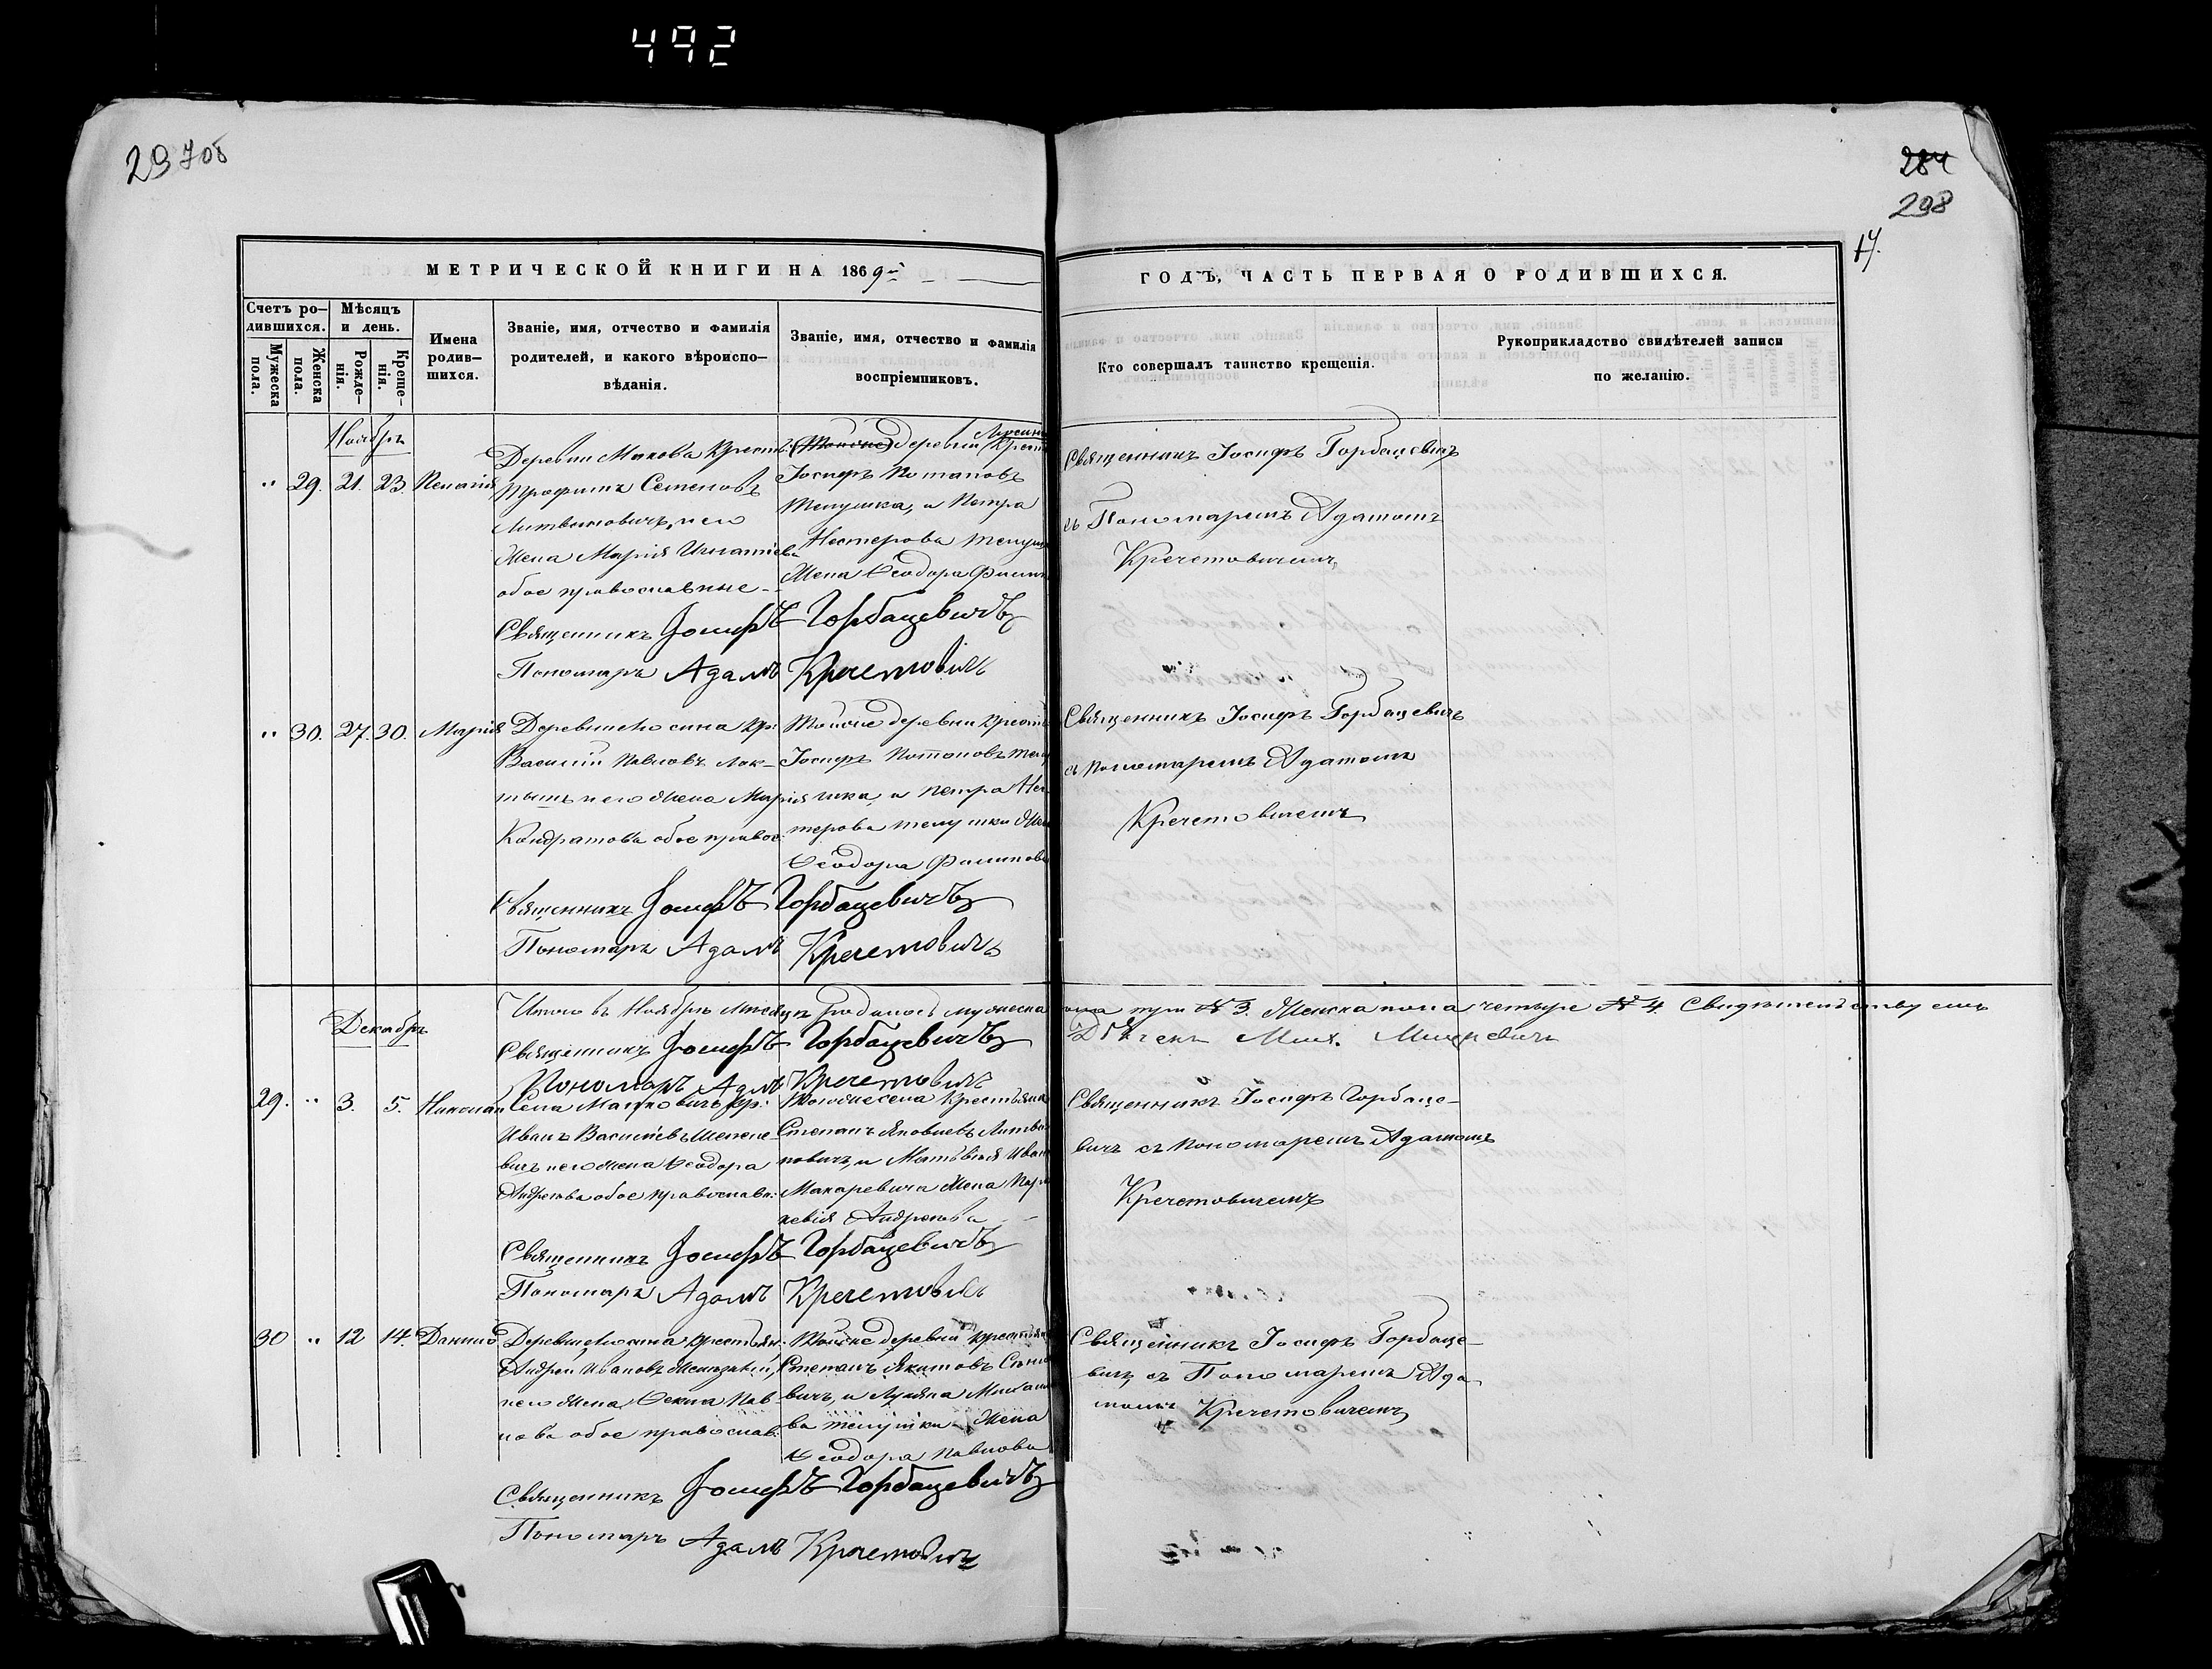 492
29 708
284
298
17.
МЕТРИЧЕСКОЙ КНИГИ НА 1869-й
ГОДЪ, ЧАСТЬ ПЕРВАЯ О РОДИВШИХСЯ.
Счетъ ро-
дившихся.
Мужеска
пола.
Женска
пола.
Мѣсяцъ
и день.
Рожде-
нія.
Креще-
нія.
Имена
родив-
шихся.
Званіе, имя, отчество и фамилія
родителей, и какого вѣроиспо-
вѣданія.
Званіе, имя, отчество и фамилія
воспріемниковъ.
Кто совершалъ таинство крещенія.
Рукоприкладство свидѣтелей записи
по желанію.
Ноябрь
" 29. 21. 23. Пелагія
Деревни Крест.
Трофимъ Семеновъ
Литвиновичъ, и его
Жена Марія Игнатіева
обое православные
деревни Крест
Іосифъ Потаповъ
Телушка, и Петра
Нестерова
Жена Ѳеодора
Священникъ Іосифъ Горбацевичъ
съ Пономаремъ Адамомъ
Кречетовичемъ
Священникъ Іосифъ Горбацевичъ
Пономарь Адамъ Кречетовичъ
" 30. 27. 30. Марія
Деревни Лосина Кр:
Василій Павловъ Лок-
тышъ и его Жена Марія
Кондратова обое правос:
Тойже деревни Крест
Іосифъ Потаповъ Телу
шка, и Петра Нес
терова Телушки Жена
Ѳеодора Филипова
Священникъ Іосифъ Горбацевичъ
съ Пономаремъ Адамомъ
Кречетовичемъ
Священникъ Іосифъ Горбацевичъ
Пономарь Адамъ Кречетовичъ
Итого въ Ноябрѣ Мѣсяцѣ родилось мужеска пола три № 3. Женска пола четыре № 4. Свидѣтельствуемъ
Священникъ Іосифъ Горбацевичъ
Мих.
Пономарь Адамъ Кречетовичъ
Декабрь
29. " 3. 5. Николай
Села Кр:
Иванъ Васильевъ
вичъ и его Жена Ѳеодора
Андреева обое православн:
Тогоже села Крестьяне
Степанъ Яковлевъ Литви
новичъ, и Матвѣя Иван
Макаревича Жена Пара
кевія Андреева
Священникъ Іосифъ Горбаце-
вичъ съ Пономаремъ Адамомъ
Кречетовичемъ
Священникъ Іосифъ Горбацевичъ
Пономарь Адамъ Кречетовичъ
30 " 12 14. Даніилъ
Деревни Лосина Крестьян:
Андрей Ивановъ
и его Жена Пав-
лова обое православ:
Тойже деревни Крестьян
Степанъ Якимовъ
вичъ, и Лукьяна Михайло
ва Телушки Жена
Ѳеодора Павлова
Священникъ Іосифъ Горбаце-
вичъ съ Пономаремъ Ада-
момъ Кречетовичемъ
Священникъ Іосифъ Горбацевичъ
Пономарь Адамъ Кречетовичъ